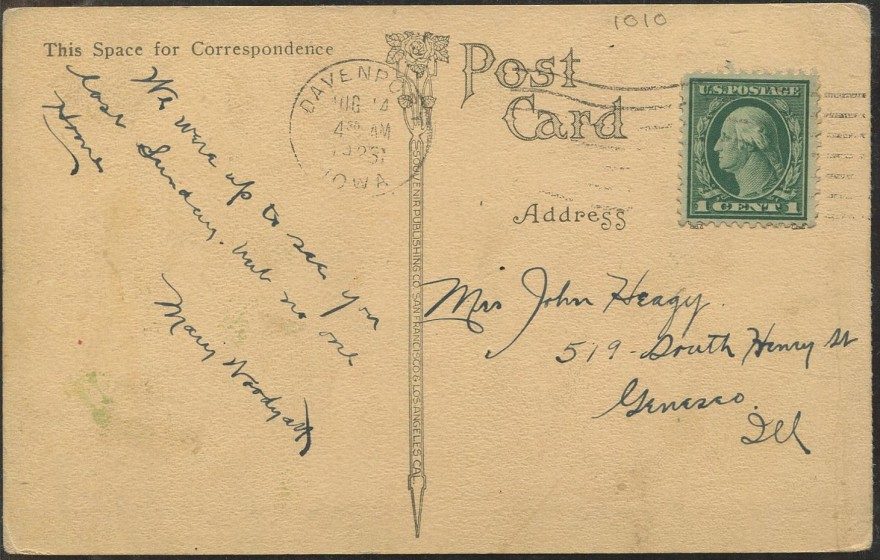 1010
This Space for Correspondence
Post
Card
Address
DAVENPO
AUG 14
4 30 AM
IOWA
U.S. POSTAGE
1 CENT 1
We were up to see you
last Sunday. but no one
Home
Mary Woodyatt
SOUVENIR PUBLISHING CO. SAN FRANCISCO & LOS ANGELES CAL.
Mrs John Heagy.
519 - South Henry St
Geneseo.
Ill